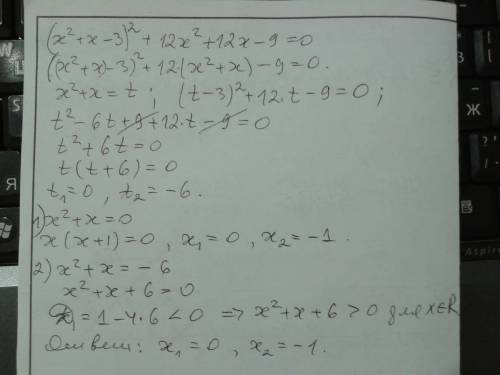 (x²+x-3)²+12x²+12x-9=0
((x²+x)-3)²+12(x²+x)-9=0.
x²+x=t; (t-3)²+12·t-9=0;
t²-6t+9+12·t-9=0
t²+6t=0
t(t+6)=0
t₁=0, t₂=-6.
1) x²+x=0
x(x+1)=0, x₁=0, x₂=-1.
2) x²+x=-6
x²+x+6=0
D₁=1-4·6<0 => x²+x+6>0 для x∈R
Ответ: x₁=0, x₂=-1.
Я
Ж